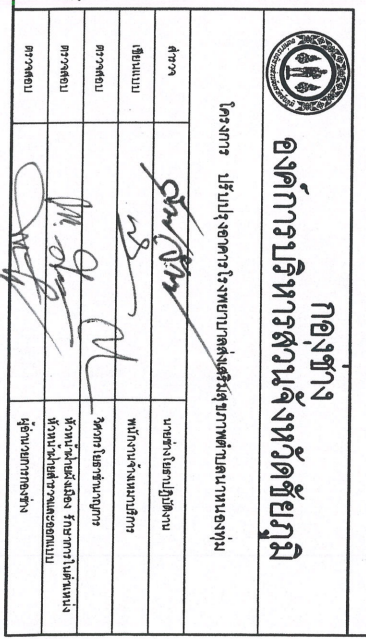 กองช่าง
องค์การบริหารส่วนจังหวัดชัยภูมิ
โครงการ ปรับปรุงอาคารโรงพยาบาลส่งเสริมสุขภาพตำบลนาหนองทุ่ม
สำรวจ นายช่างโยธาปฏิบัติงาน
เขียนแบบ พนักงานจ้างเหมาบริการ
ตรวจสอบ วิศวกรโยธาชำนาญการ
ตรวจสอบ หัวหน้าฝ่ายผังเมือง รักษาการในตำแหน่ง
หัวหน้าฝ่ายสำรวจและออกแบบ
ตรวจสอบ ผู้อำนวยการกองช่าง